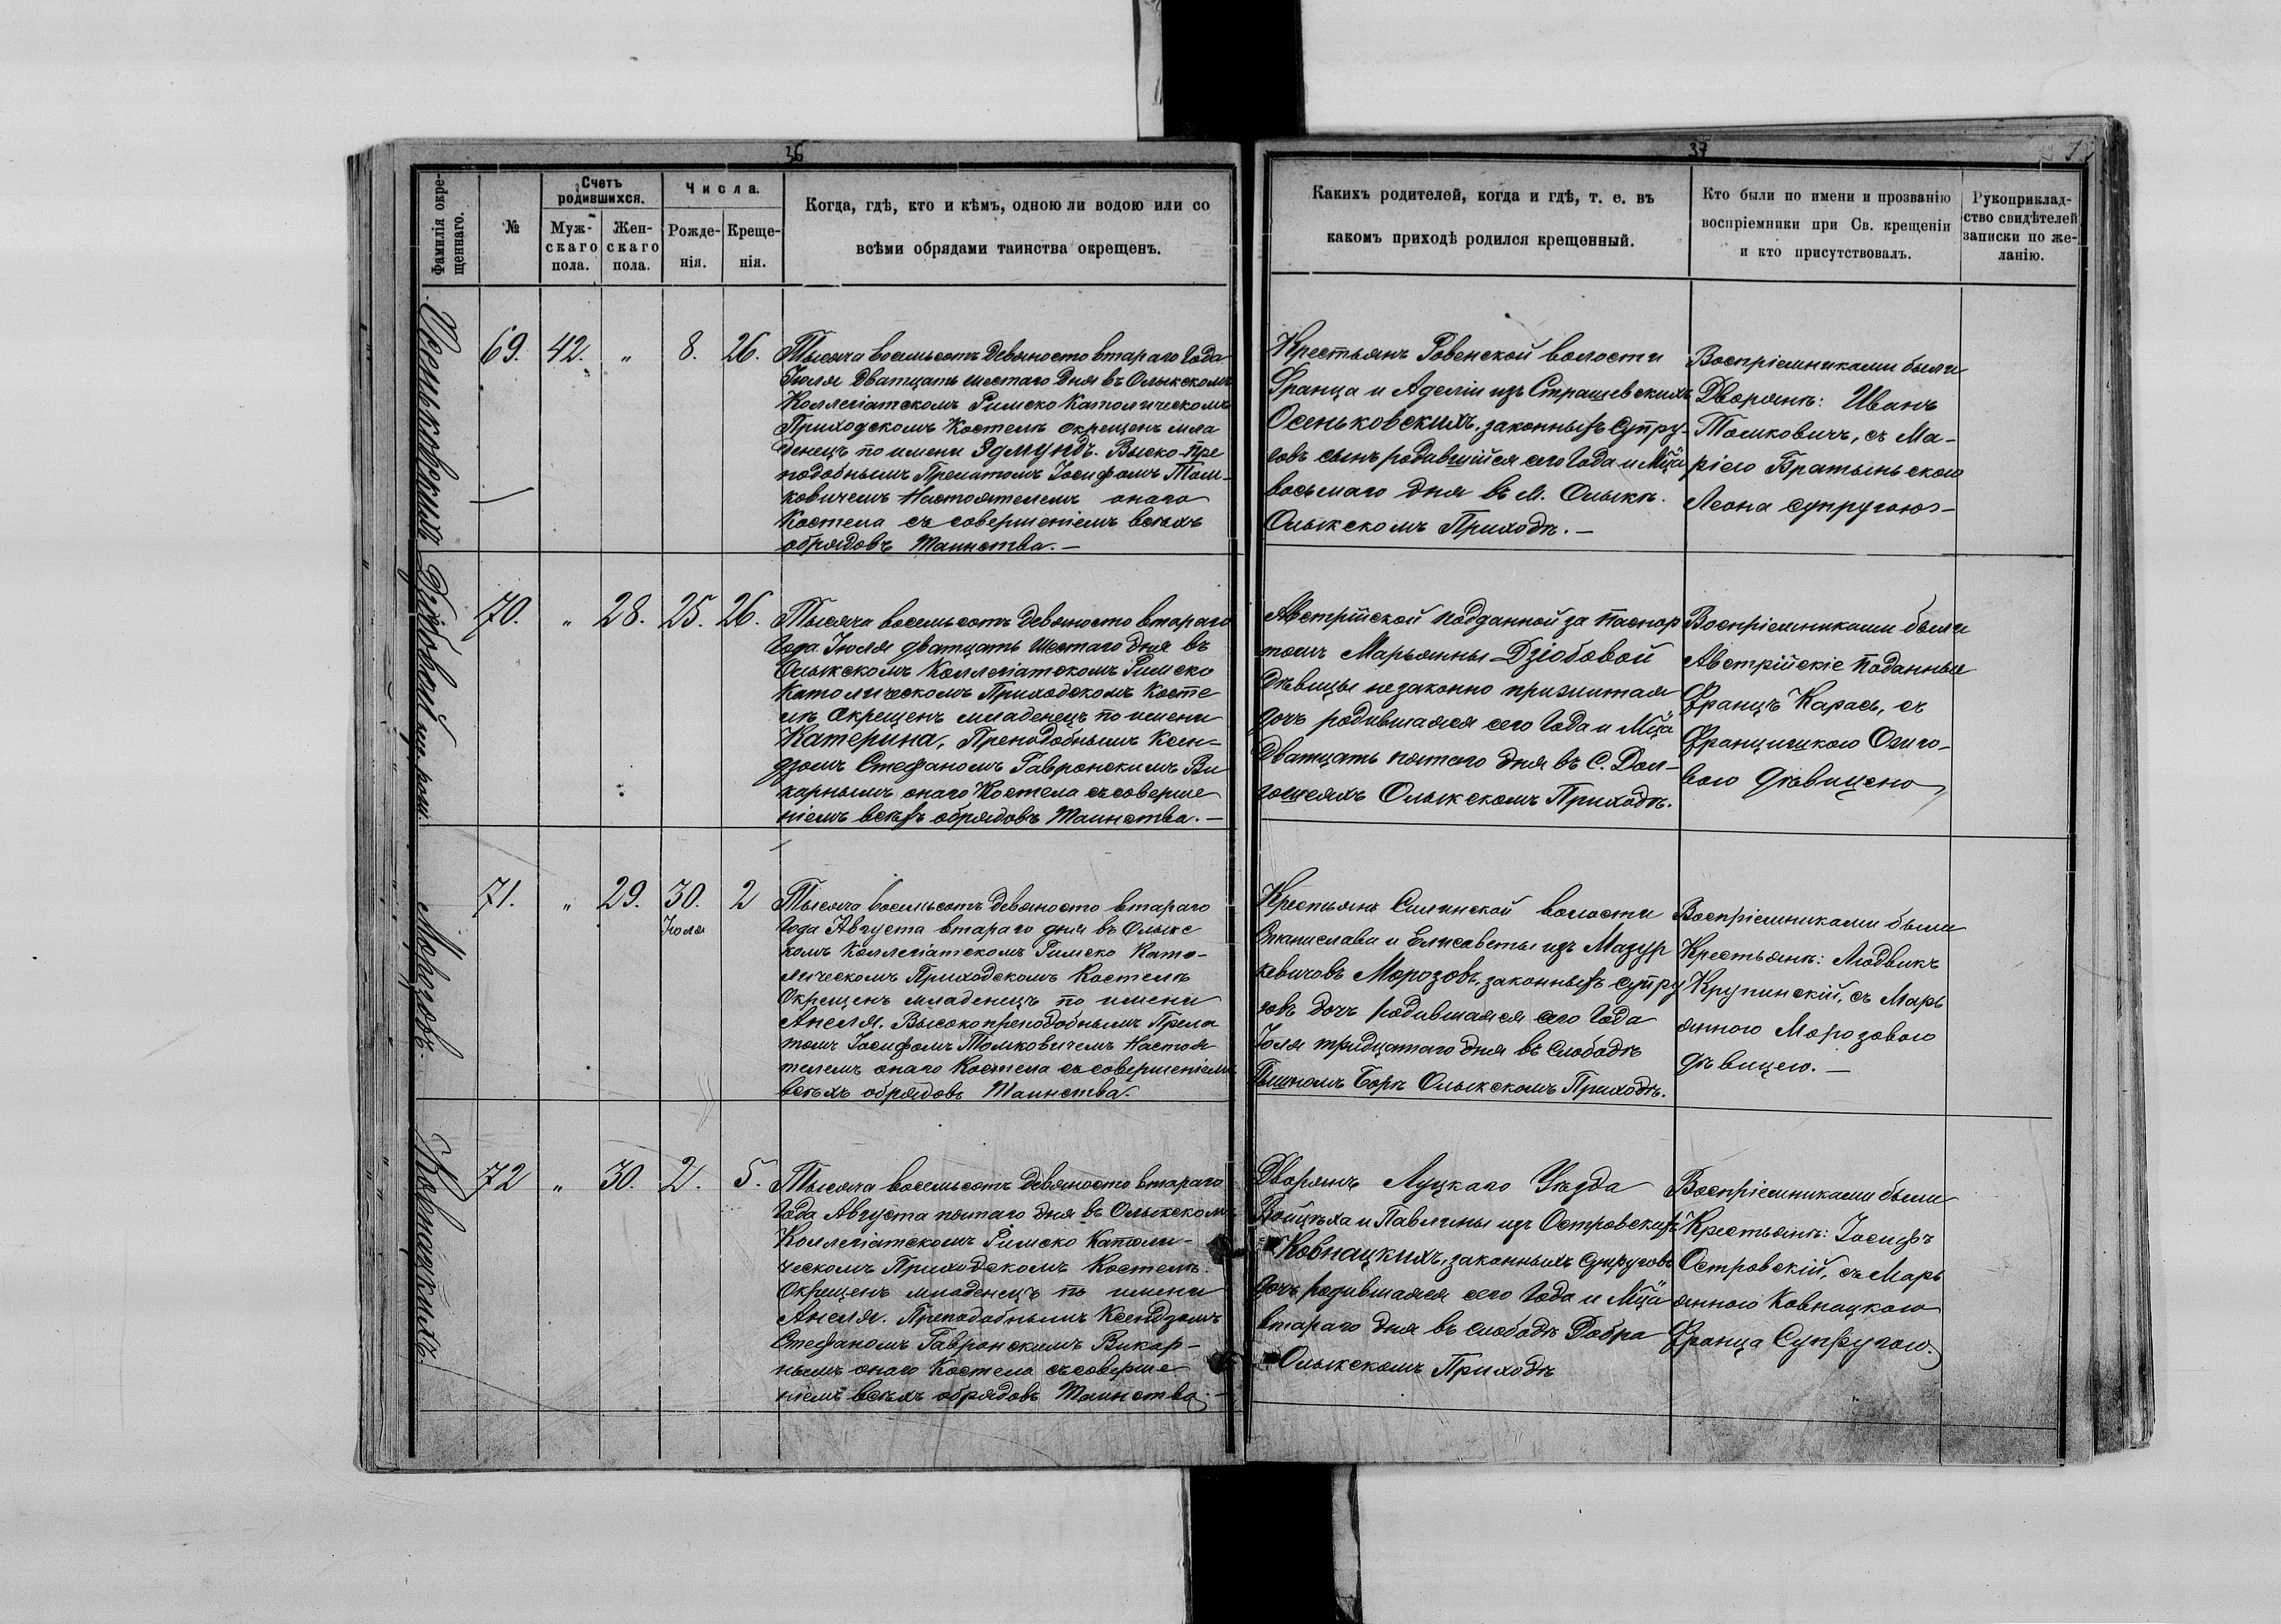 36
Фамилія окре-
щеннаго.
№
Счетъ
родившихся.
Муж-
скаго
пола.
Жен-
скаго
пола.
Числа.
Рожде-
нія.
Креще-
нія.
Когда, гдѣ, кто и кѣмъ, одною ли водою или со
всѣми обрядами таинства окрещенъ.
37
Какихъ родителей, когда и гдѣ, т. е. въ
какомъ приходѣ родился крещенный.
Кто были по имени и прозванію
воспріемники при Св. крещеніи
и кто присутствовалъ.
Рукоприклад-
ство свидѣтелей
записки по же-
ланію.
Осеньковскихъ
69. 42. „ 8. 26.
Тысяча восемьсотъ девяносто втараго Года
Іюля дватцать шестаго дня въ Олыкскомъ
Коллегіатскомъ Римско Католическомъ
Приходскомъ Костелѣ окрещенъ мла
денецъ по имени Эдмундъ. Выско-пре
подобнымъ Прелатомъ Іосифомъ Том-
ковичемъ Настоятелемъ онаго
Костела съ совершеніемъ всѣхъ
обрядовъ Таинства. —
Крестьянъ Ровенской волости
Франца и Аделіи изъ Страшевскихъ
Осеньковскихъ, законныхъ Супру-
говъ сынъ родавшійся сего Года и Мца
восьмаго дня въ М. Олыкѣ.
Олыкскомъ Приходѣ. —
Воспріемниками были
Дворянѣ: Иванъ
Томковичъ, съ Ма-
ріею Братыньскою
Леона супругою —
Дзіобовой
70. „ 28. 25. 26.
Тысяча восемьсотъ девяносто втараго
Года Іюля дватцать шестаго дня въ
Олыкскомъ Коллегіатскомъ Римско
Католическомъ Приходскомъ Косте
лѣ Окрещенъ младенецъ по имени
Катерина, Преподобнымъ Ксен-
дзомъ Стефаномъ Гавронскимъ Ви
карнымъ онаго Костела съ соверше
ніемъ всѣхъ обрядовъ Таинства. —
Австрійской подданной за паспор
томъ Марьянны Дзіобовой
Дѣвицы незаконно прижитая
дочъ родившаяся сего Года и Мца
Дватцать пятаго дня въ С. Дол-
гошеяхъ Олыкскомъ Приходѣ.
Воспріемниками были
Австрійскіе Поданные
Францъ Карась, съ
Францишкою Ожго-
вою дѣвицею
Морозовъ.
71. „ 29. 30. 2
Іюля
Тысяча восемьсотъ девяносто втараго
Года Августа втараго дня въ Олыкс
комъ Коллегіатскомъ Римско Като-
лическомъ Приходскомъ Костелѣ
Окрещенъ младенецъ по имени
Анеля. Высокопреподобнымъ Прела
томъ Іосифомъ Томковичемъ Настоя
телемъ онаго Костела съ совершеніемъ
всѣхъ обрядовъ Таинства.
Крестьянъ Силинской волости
Станислава и Елисаветы изъ Мазур
кевичовъ Морозовъ, законныхъ супру
говъ дочъ родившаяся сего Года
Іюля тридцатаго дня въ Слободѣ
Пышномъ Борѣ Олыкскомъ Приходѣ.
Воспріемниками были
Крестьянѣ: Людвикъ
Крупинскій, съ Марь
янною Морозовою
дѣвицею. —
Ковнацкихъ.
72 „ 30. 2. 5.
Тысяча восемьсотъ девяносто втараго
Года Августа пятаго дня въ Олыкскомъ
Коллегіатскомъ Римско Католи-
ческомъ Приходскомъ Костелѣ.
Окрещенъ младенецъ по имени
Анеля. Преподобнымъ Ксендзомъ
Стефаномъ Гавронскимъ Викар-
нымъ онаго Костела съ соверше
ніемъ всѣхъ обрядовъ Таинства. —
Дворянъ Луцкаго Уѣзда
Войцѣха и Павлины изъ Островскихъ
Ковнацкихъ, законныхъ Супруговъ
дочъ родившаяся сего Года и Мца
втараго дня въ слободѣ Добра
Олыкскомъ Приходѣ
Воспріемниками были
Крестьянѣ: Іосифъ
Островскій, съ Марь
янною Ковнацкою
Франца Супругою.